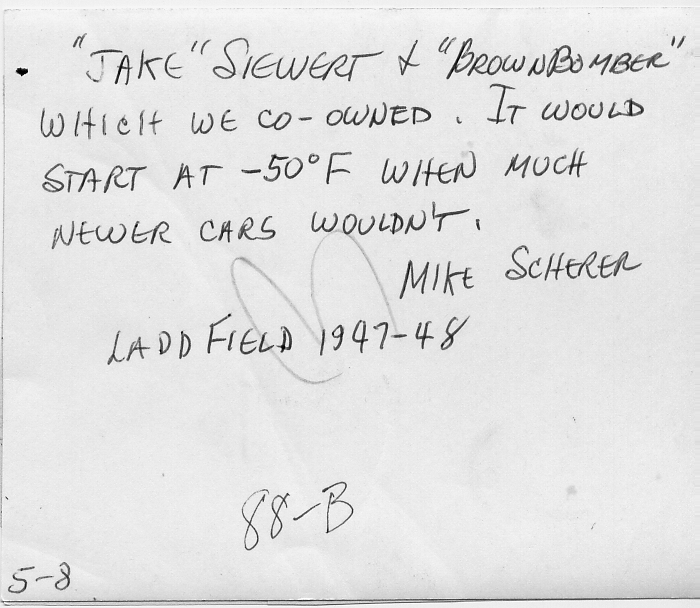 "JAKE" SIEWERT & "BROWN BOMBER"
WHICH WE CO-OWNED. IT WOULD
START AT -50°F WHEN MUCH
NEWER CARS WOULDN'T.
MIKE SCHERER
LADD FIELD 1947-48
88-B
5-8